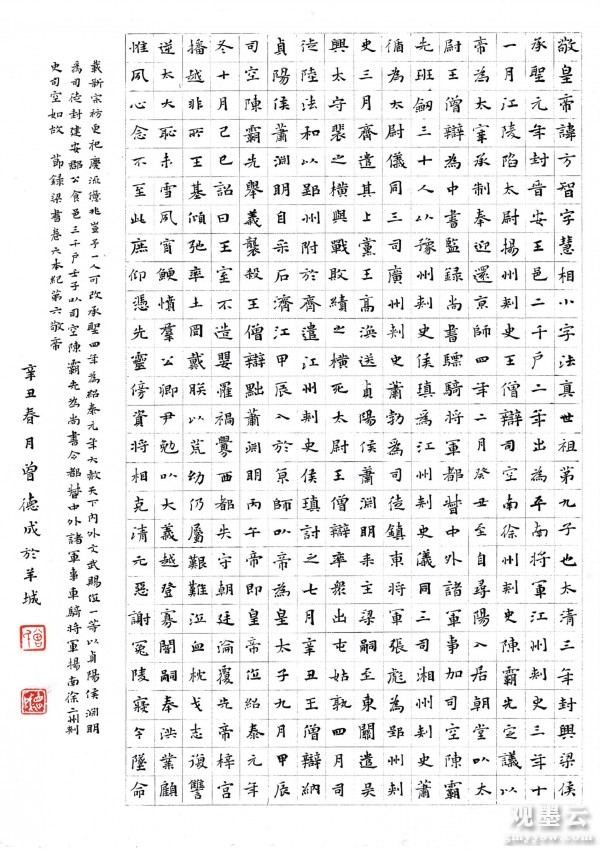 敬皇帝諱方智字慧相小字法真世祖第九子也太清三年封興梁侯
承聖元年封晉安王邑二千戶二年出為平南將軍江州刺史三年十
一月江陵陷太尉揚州刺史王僧辯司空南徐州刺史陳霸先定議以
帝為太宰承制奉迎還京師四年二月癸丑至自尋陽入居朝堂以太
尉王僧辯為中書監録尚書驃騎將軍都督中外諸軍事加司空陳霸
先班劒三十人以豫州刺史侯瑱為江州刺史儀同三司湘州刺史蕭
循為太尉儀同三司廣州刺史蕭勃為司徒鎮東將軍張彪為郢州刺
史三月齊遣其上黨王高渙送貞陽侯蕭淵明來主梁嗣至東關遣吳
興太守裴之橫與戰敗績之橫死太尉王僧辯率衆出屯姑孰四月司
徒陸法和以郢州附於齊遣江州刺史侯瑱討之七月辛丑王僧辯納
貞陽侯蕭淵明自采石濟江甲辰入於京師以帝為皇太子九月甲辰
司空陳霸先舉義襲殺王僧辯黜蕭淵明丙午帝即皇帝位紹泰元年
冬十月己巳詔曰王室不造嬰罹禍釁西都失守朝廷淪覆先帝梓宮
播越非所王基傾弛率土罔戴朕以荒幼仍屬艱難泣血枕戈志復讐
逆大恥未雪夙宵鯁憤羣公卿尹勉以大義越登寡闇嗣奉洪業顧
惟夙心念不至此庶仰憑先靈傍資將相克清元惡謝冤陵寢今墜命
載新宗祊更祀慶流億兆豈予一人可改承聖四年為紹泰元年大赦天下內外文武賜位一等以貞陽侯淵明
為司徒封建安郡公食邑三千戶壬子以司空陳霸先為尚書令都督中外諸軍事車騎將軍揚南徐二州刺
史司空如故 節録梁書卷六本紀第六敬帝
辛丑春月曾德成於羊城
观墨云